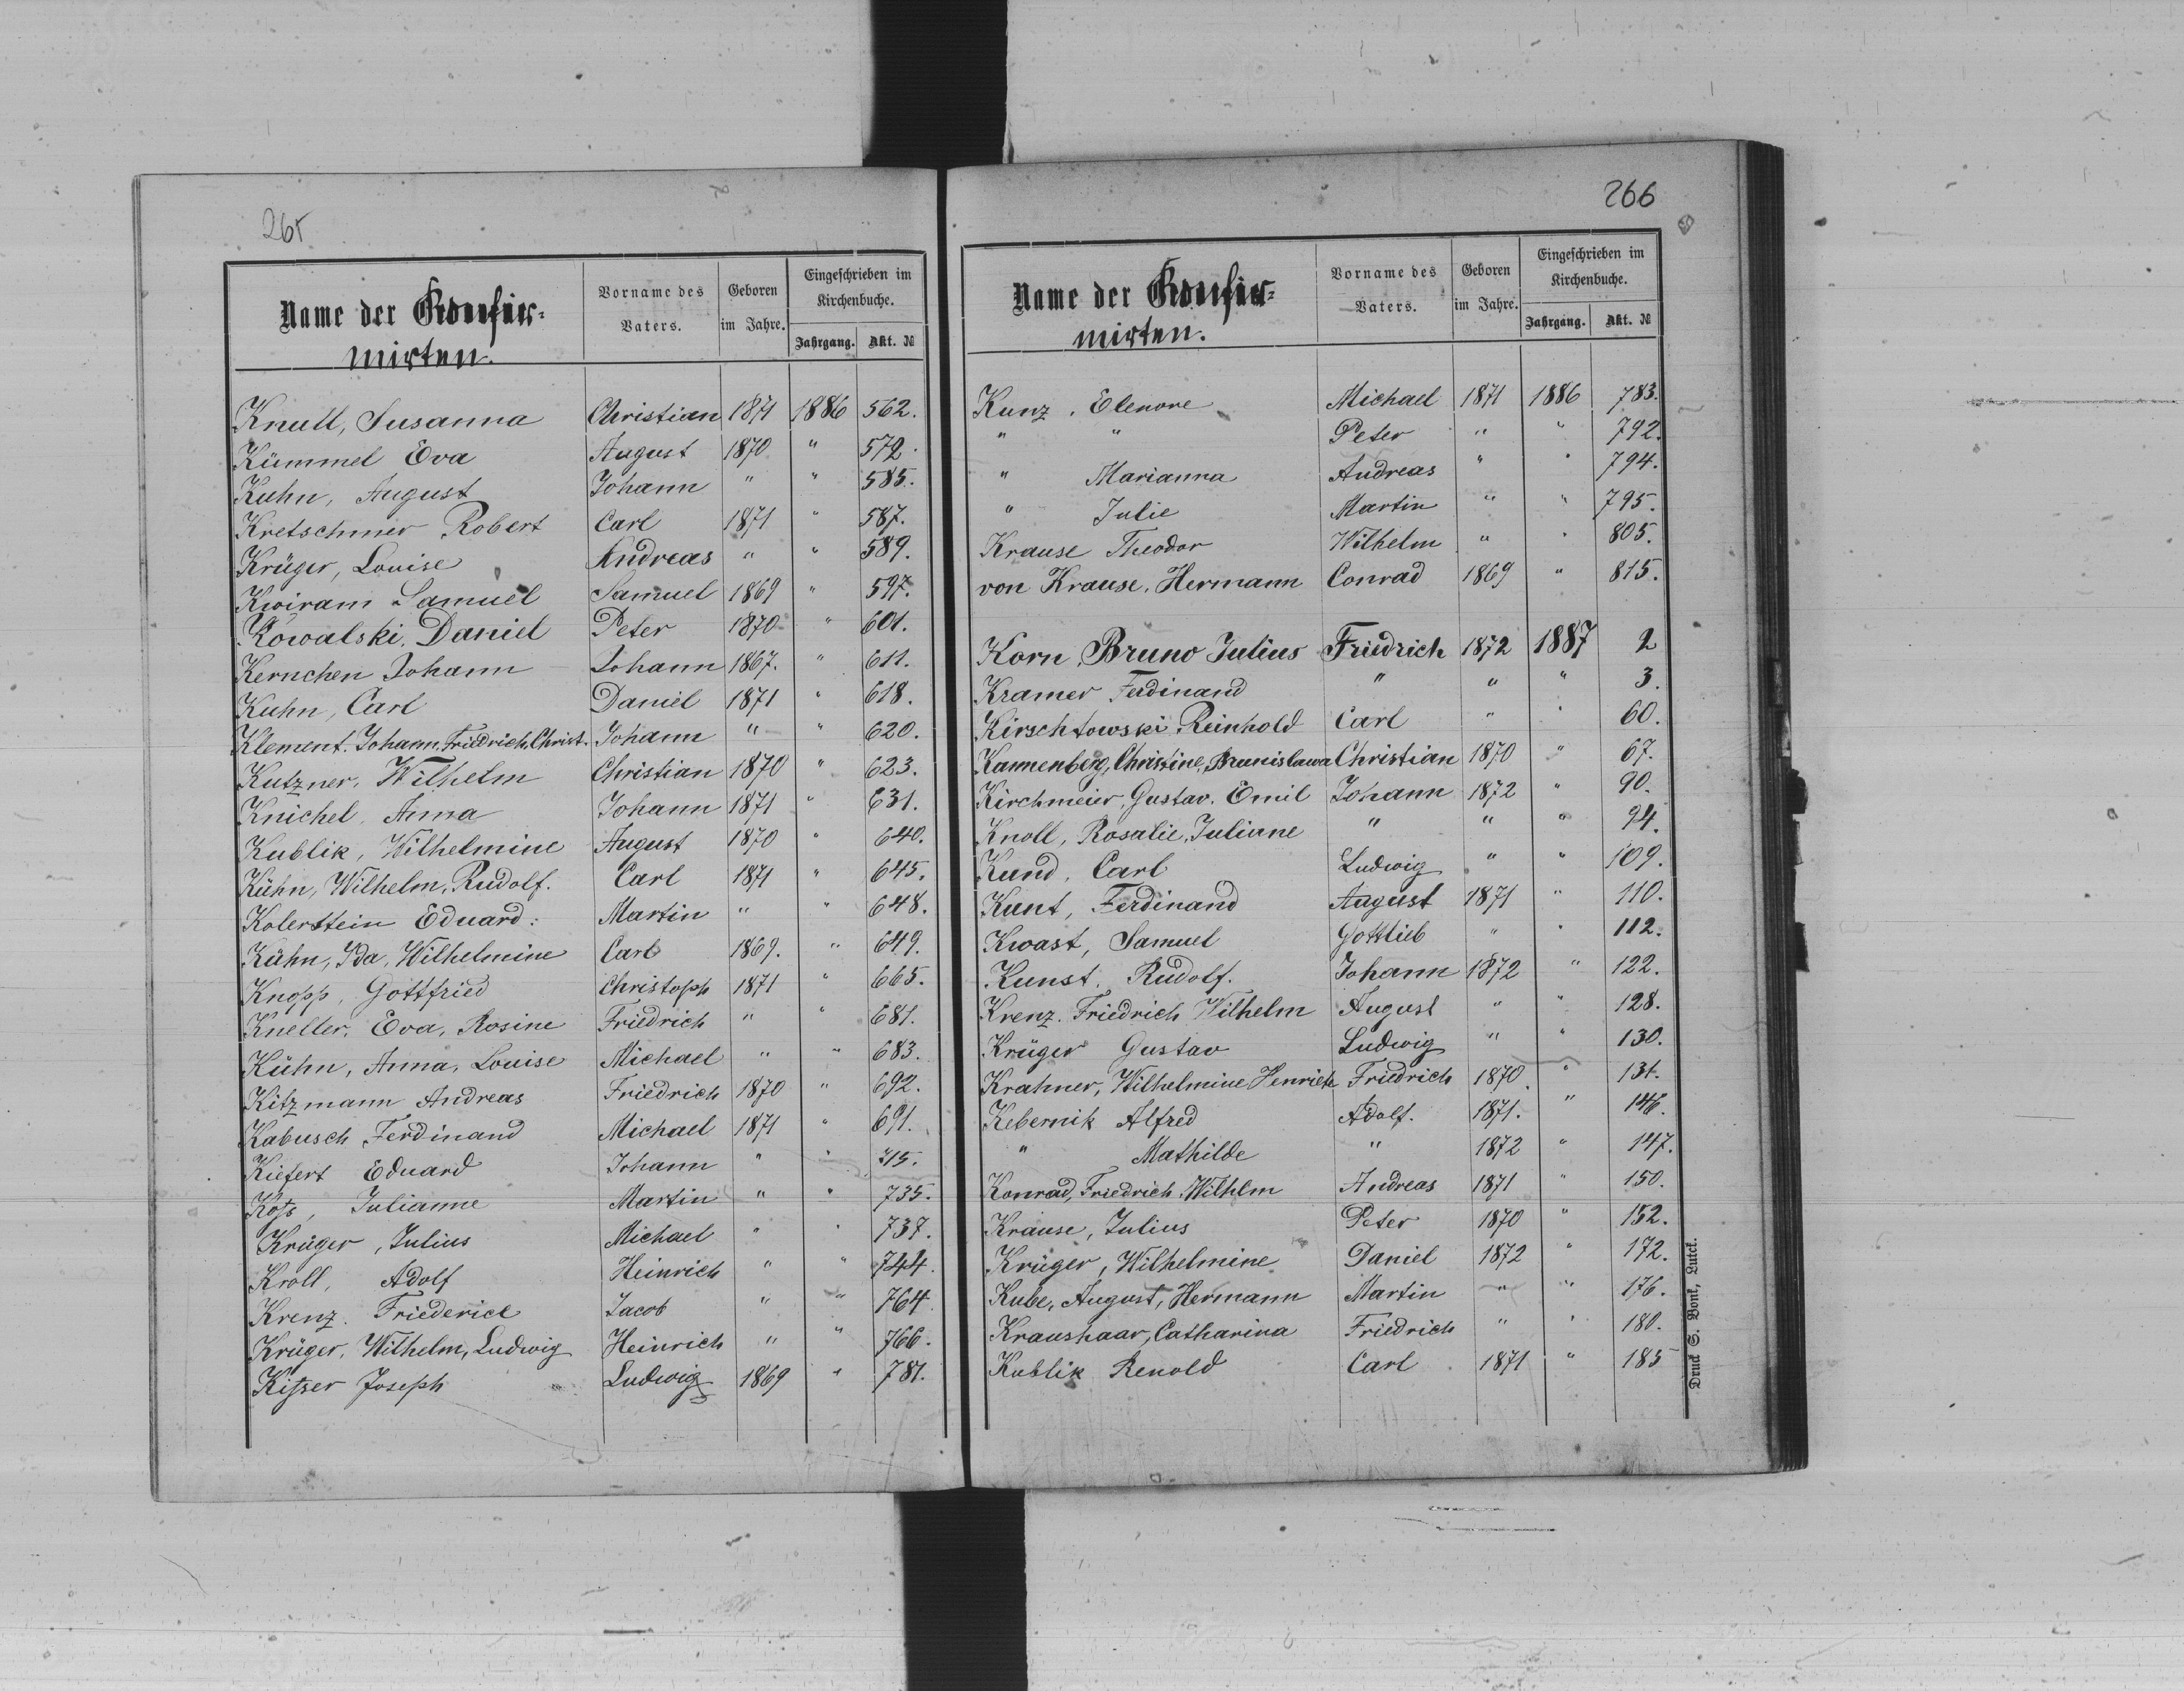 265
Name der Konfir-
mirten.
Vorname des
Vaters.
Geboren
im Jahre.
Eingeschrieben im
Kirchenbuche.
Jahrgang. Akt. №
Knull, Susanna Christian 1871 1886 562.
Kümmel Eva August 1870 " 572.
Kuhn, August Johann " " 585.
Kretschmer Robert Carl 1871 " 587.
Krüger, Louise Andreas " " 589.
Kwiram Samuel Samuel 1869 " 597.
Kowalski, Daniel Peter 1870 " 601.
Kernchen Johann Johann 1867. " 611.
Kuhn, Carl Daniel 1871 " 618.
Klement. Johann, Friedrich, Christ. Johann " " 620.
Kutzner, Wilhelm Christian 1870 " 623.
Knichel, Anna Johann 1871 " 631.
Kublik, Wilhelmine August 1870 " 640.
Kühn, Wilhelm, Rudolf. Carl 1871 " 645.
Kolerstein Eduard: Martin " " 648.
Kühn, Ida, Wilhelmine Carl 1869. " 649.
Knopp, Gottfried Christoph 1871 " 665.
Kneller, Eva, Rosine Friedrich " " 681.
Kühn, Anna, Louise Michael " " 683.
Kitzmann Andreas Friedrich 1870 " 692.
Kabusch Ferdinand Michael 1871 " 691.
Kiefert Eduard Johann " " 715.
Koſs, Julianne Martin " " 735.
Krüger, Julius Michael " " 737.
Kroll, Adolf Heinrich " " 744.
Krenz. Friederick Jacob " " 764.
Krüger, Wilhelm, Ludwig Heinrich " " 766.
Kiſser Joseph Ludwig 1869 " 781.
266
Name der Konfir-
mirten.
Vorname des
Vaters.
Geboren
im Jahre.
Eingeschrieben im
Kirchenbuche.
Jahrgang. Akt. №
Kunz, Elenore Michael 1871 1886 783.
" " Peter " " 792.
" Marianna Andreas " " 794.
" Julie Martin " " 795.
Krause Theodor Wilhelm " " 805.
von Krause, Hermann Conrad 1869 " 815.
Korn, Bruno Julius Friedrich 1872 1887 2
Kramer Ferdinand " " " 3.
Kirschtowski Reinhold Carl " " 60.
Kannenberg, Christine, Brunislawa Christian 1870 " 67.
Kirchmeier, Gustav. Emil Johann 1872 " 90.
Knoll, Rosalie, Juliane " " " 94.
Kund, Carl Ludwig " " 109.
Kunt, Ferdinand August 1871 " 110.
Kwast, Samuel Gottlieb " " 112.
Kunst, Rudolf. Johann 1872 " 122.
Krenz. Friedrich Wilhelm August " " 128.
Krüger Gustav Ludwig " " 130.
Krahner, Wilhelmine Henriete Friedrich 1870. " 131.
Kebernik Alfred Adolf. 1871. " 146.
" Mathilde " 1872 " 147.
Konrad, Friedrich, Wilhlm Andreas 1871 " 150.
Krause, Julius Peter 1870 " 152.
Krüger, Wilhelmine Daniel 1872 " 172.
Kube, August, Hermann Martin " " 176.
Kraushaar, Catharina Friedrich " " 180.
Kublik Renold Carl 1871 " 185
Druck S. Bonk, Lutck.